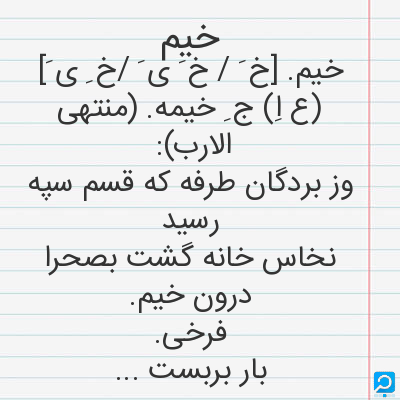 خیم
خیم. [خ َ / خ َ ی َ /خ ِ ی َ]
(ع اِ) ج ِ خیمه. (منتهی
الارب):
وز بردگان طرفه که قسم سپه
رسید
نخاس خانه گشت بصحرا
درون خیم.
فرخی.
بار بربست ...